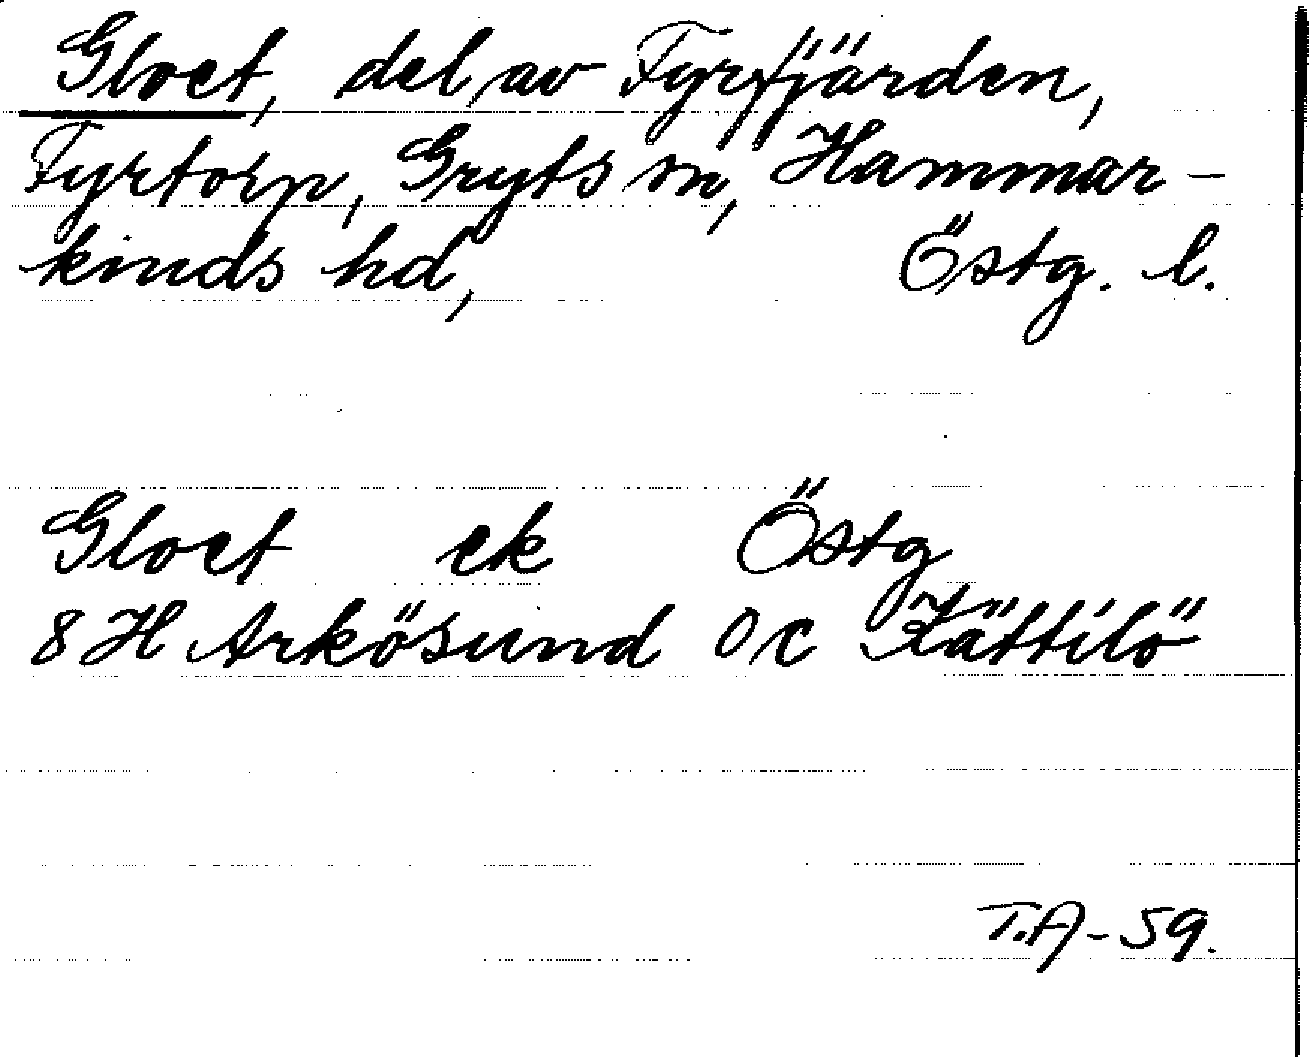 Gloet, del av Fyrfjärden,
Fyrtorp, Gryts sn, Hammar-
kinds hd, Östg. l.
Gloet ek Östg
8 H Arkösund 0 c Kättilö
T.A-59.